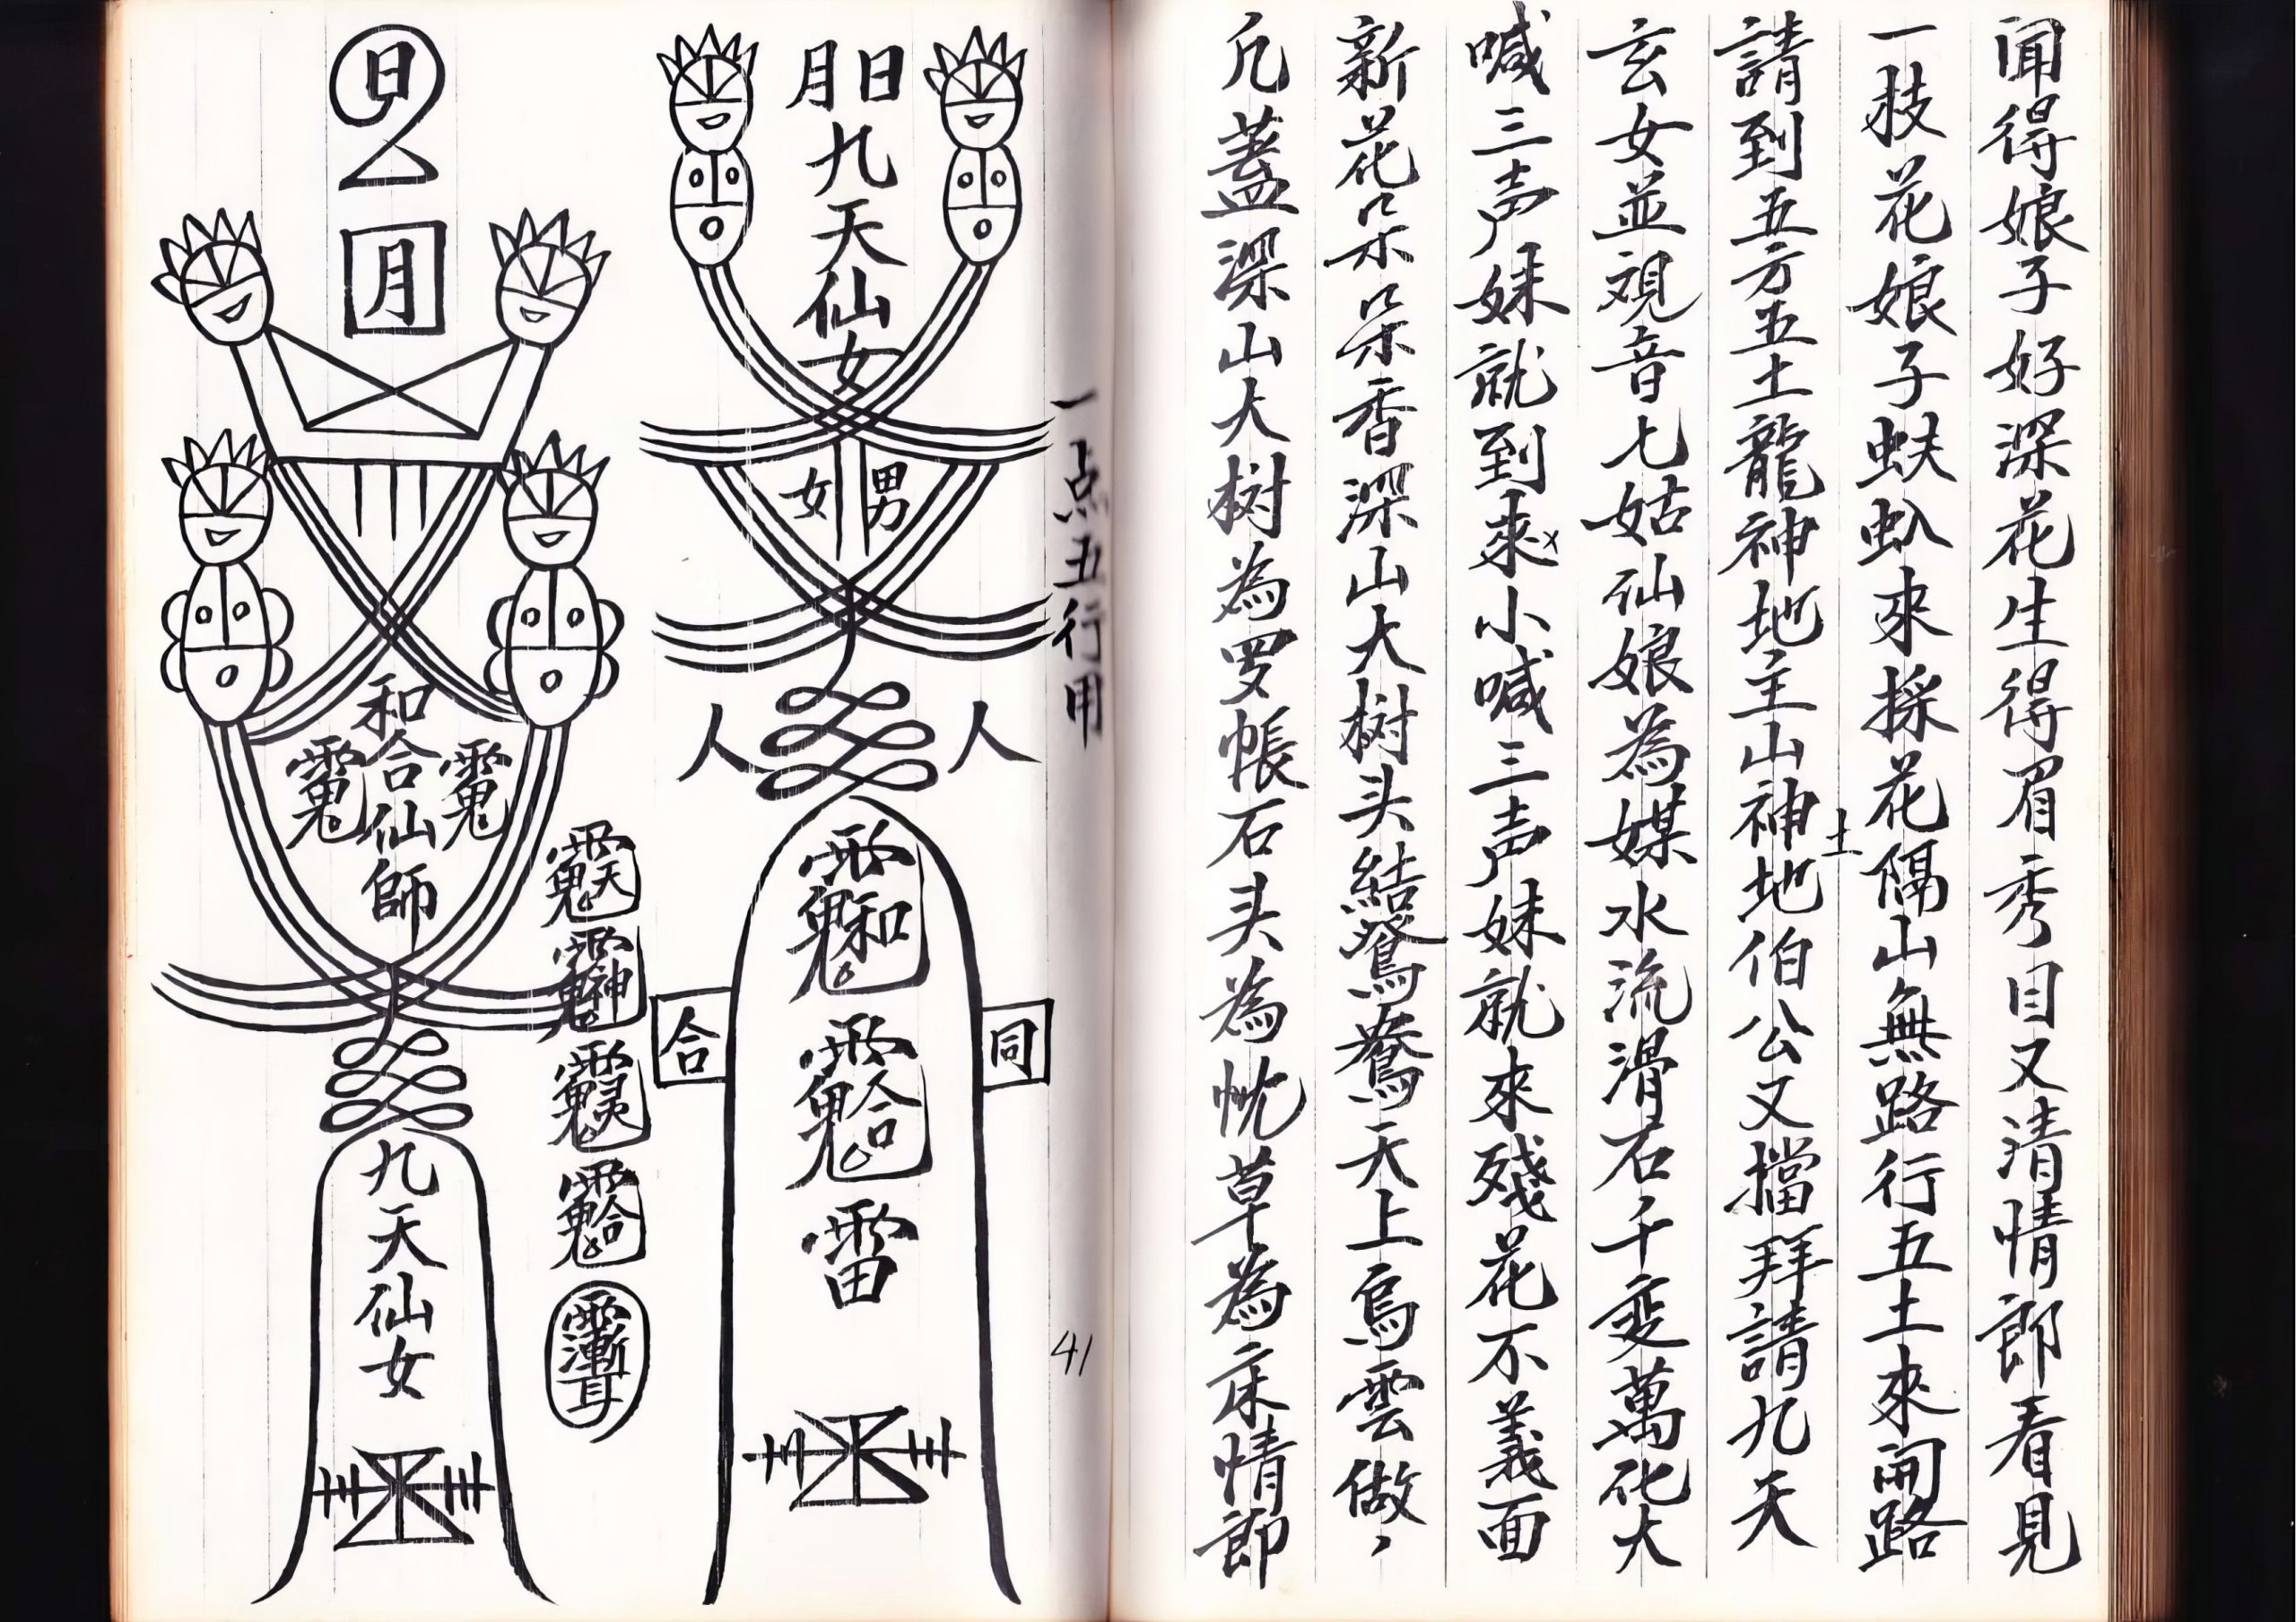 闻得娘子好深花生得眉秀目又清情郎看見
一枝花娘子蚨虯來採花隔山無路行五土來開路
請到五方五土龍神地主山神地伯公又擋拜請九天
土
玄女並視音七姑仙娘為媒水流滑石千变萬化大
喊三声妹就到來x小喊三声妹就來殘花不義面
新花朵朵香深山大树头結鴛鴦天上烏雲做、
凢蓋深山大树為罗帳石头為忱草為床情郎
一点五行用
41
日月
九天仙女
男
女
人
人
和
合
雷
同
合
日
月
和合仙師
天
神
灵
合
九天仙女